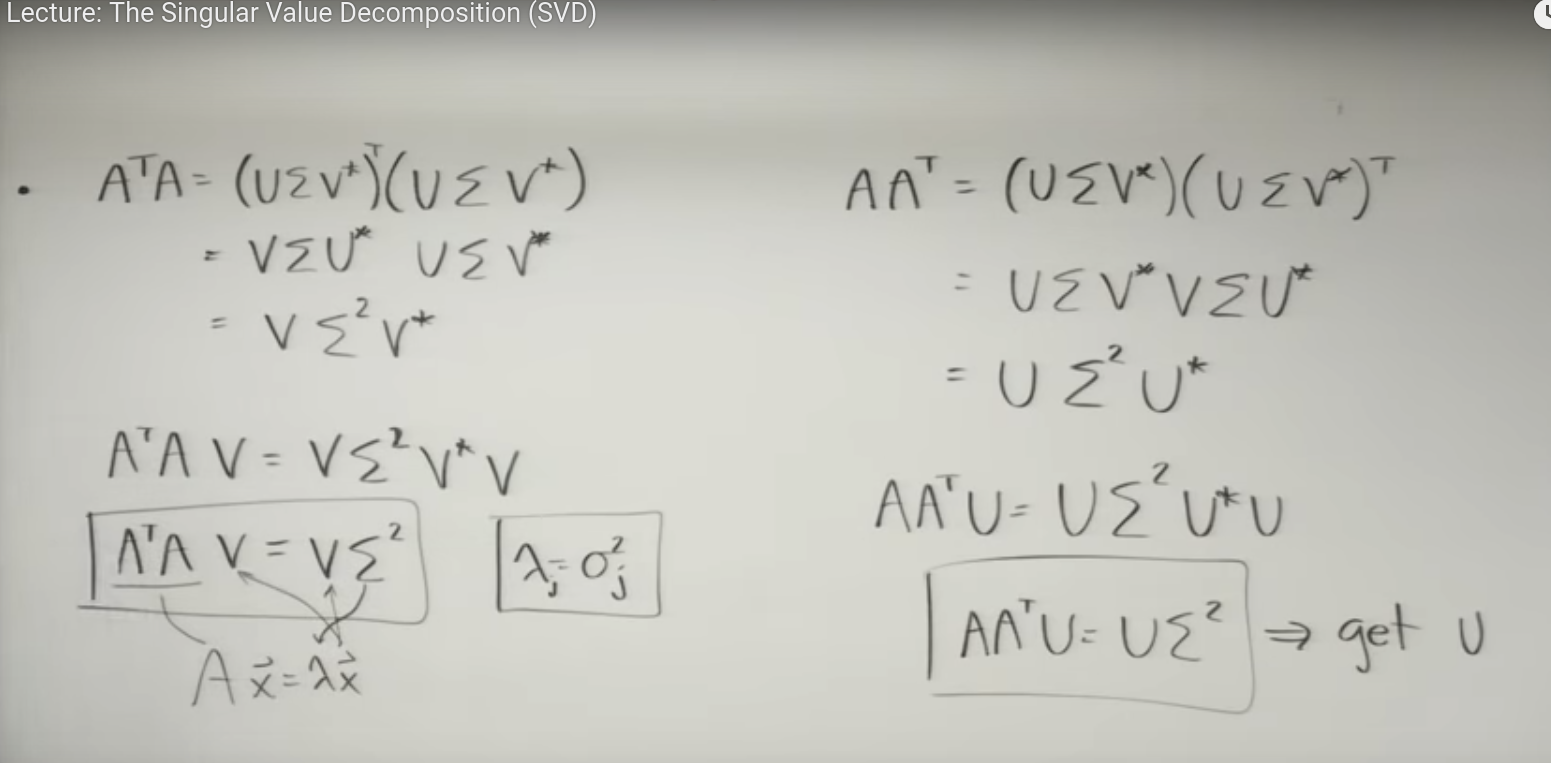 Lecture: The Singular Value Decomposition (SVD)
• AᵀA = (UΣV*)ᵀ(UΣV*)
= VΣU* UΣV*
= VΣ²V*
AᵀA V = VΣ²V*V
AᵀA V = VΣ²
λⱼ = σⱼ²
A x⃗ = λx⃗
AAᵀ = (UΣV*)(UΣV*)ᵀ
= UΣV*VΣU*
= UΣ²U*
AAᵀU = UΣ²U*U
AAᵀU = UΣ² ⇒ get U